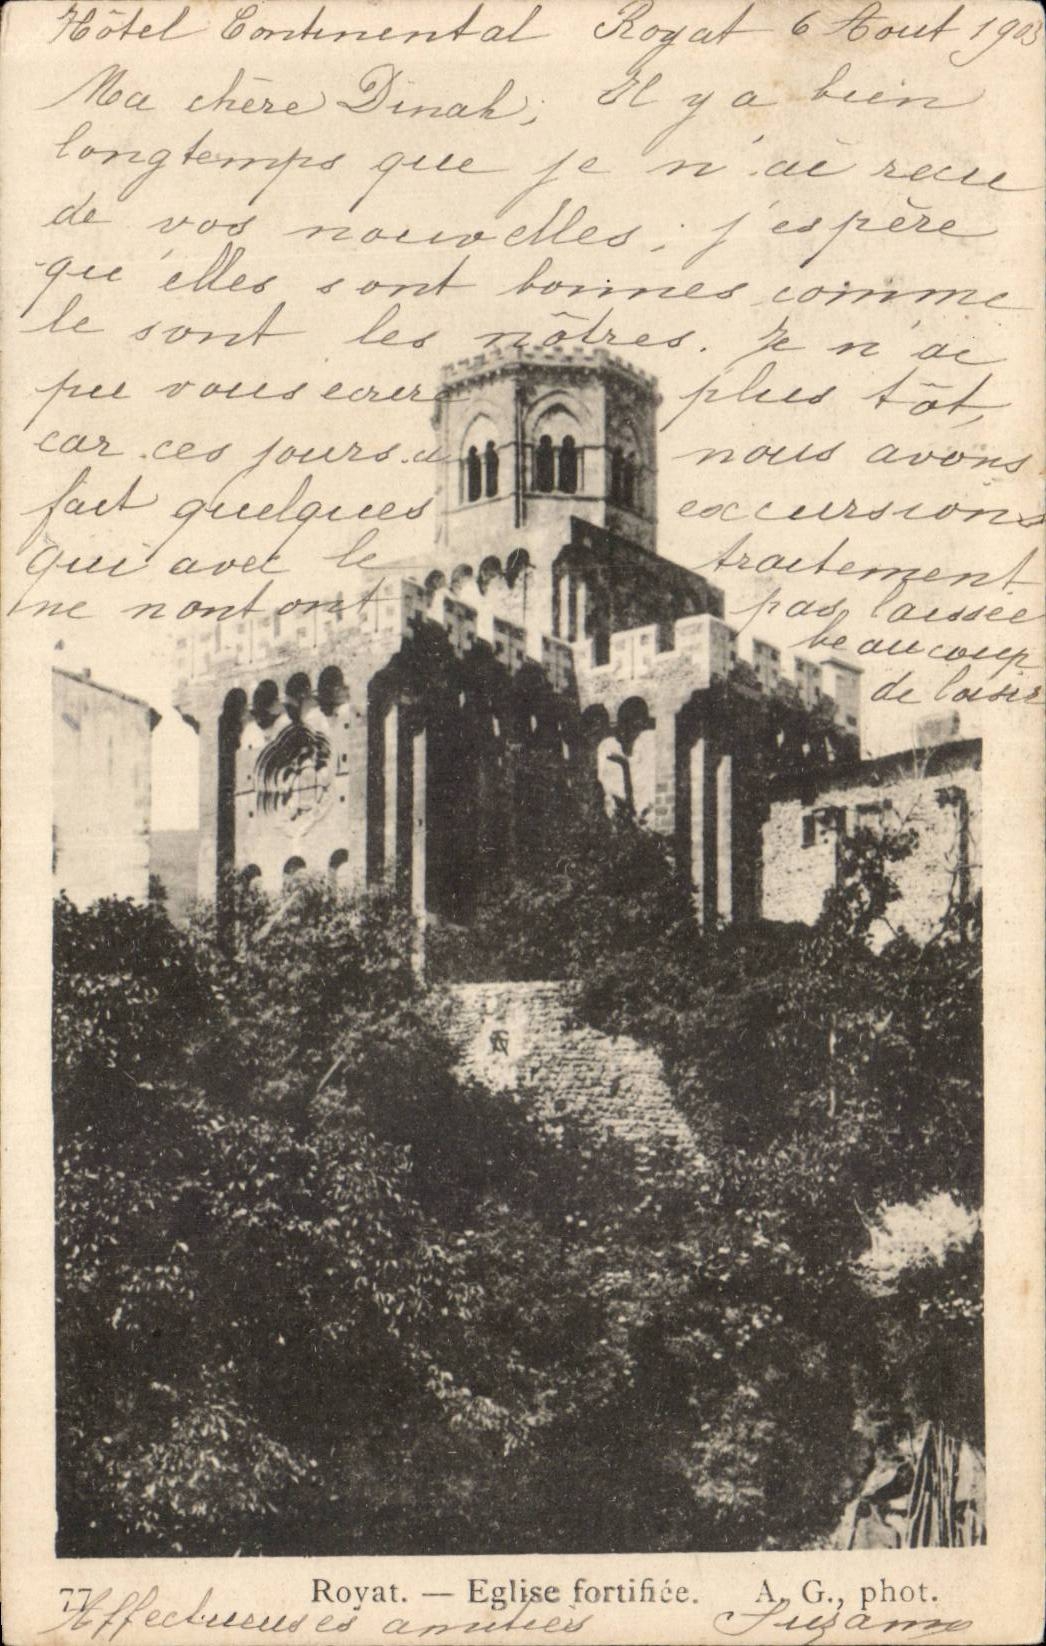 Hôtel Continental Royat 6 Aout 1903
Ma chère Dinah, Il y a bien
longtemps que je n'ai recu
de vos nouvelles; j'espère
qu'elles sont bonnes comme
le sont les nôtres. Je n'ai
pu vous ecrire plus tôt,
car ces jours ci nous avons
fait quelques excursions
qui avec le traitement
ne nont ont pas laissée
beaucoup
de loisir
77 Royat. — Eglise fortifiée. A. G., phot.
Affectueuses amitiés Suzanne